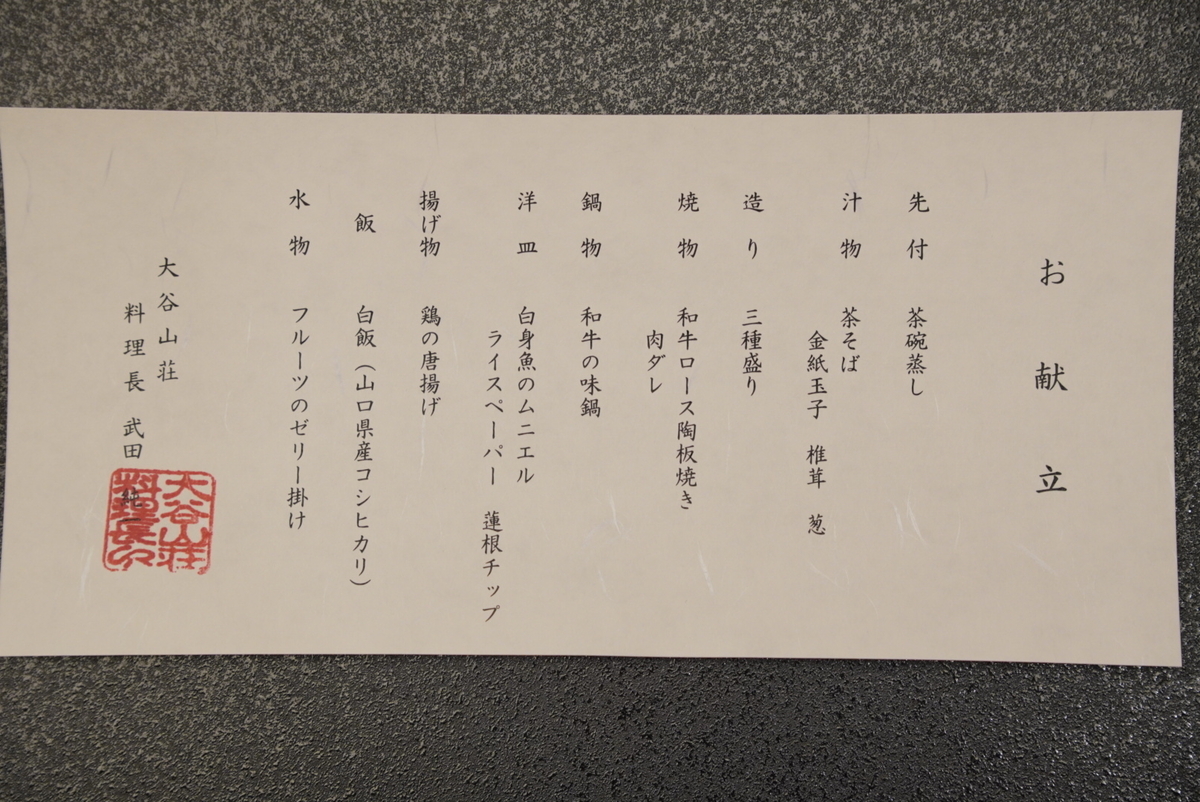 お献立
先付 茶碗蒸し
汁物 茶そば
金紙玉子 椎茸 葱
造り 三種盛り
焼物 和牛ロース陶板焼き
肉ダレ
鍋物 和牛の味鍋
洋皿 白身魚のムニエル
ライスペーパー 蓮根チップ
揚げ物 鶏の唐揚げ
飯 白飯(山口県産コシヒカリ)
水物 フルーツのゼリー掛け
大谷山荘
料理長 武田 純一
大谷山荘
料理長印